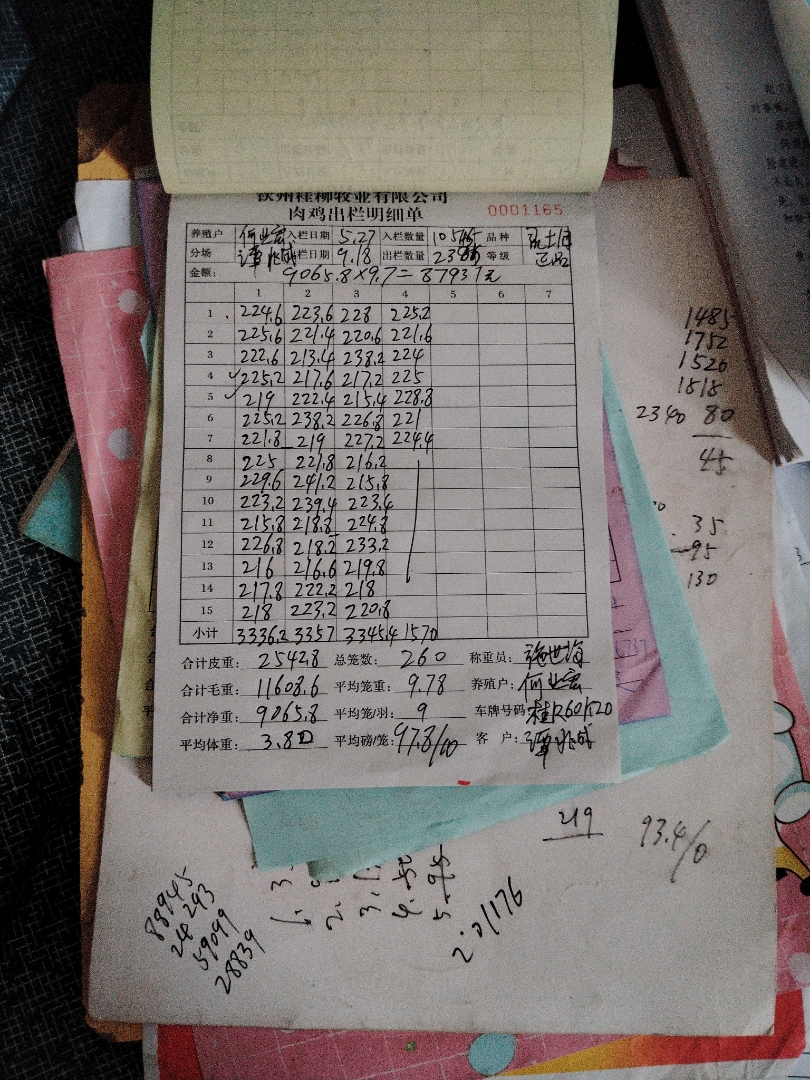 钦州桂柳牧业有限公司
肉鸡出栏明细单 0001165
养殖户 何业宏 入栏日期 5.27 入栏数量 品种
分场 谭兆成 出栏日期 9.18 出栏数量 等级 正品
金额: 9065.8×9.7=87937元
1 2 3 4 5 6 7
1 224.6 223.6 228 225.2
2 225.6 221.4 220.6 221.6
3 222.6 213.4 238.2 224
4 225.2 217.6 217.2 225
5 219 222.4 215.4 228.8
6 225.2 238.2 226.8 221
7 221.8 219 227.2 224.4
8 225 221.8 216.2
9 229.6 241.2 215.8
10 223.2 239.4 223.4
11 215.8 218.8 224.8
12 226.8 218.2 233.2
13 216 216.6 219.8
14 217.8 222.2 218
15 218 223.2 220.8
小计 3336.2 3357 3345.4 1570
合计皮重: 2542.8 总笼数: 260 称重员: 施世海
合计毛重: 11608.6 平均笼重: 9.78 养殖户: 何业宏
合计净重: 9065.8 平均笼/羽: 9 车牌号码: 桂R60K20
平均体重: 3.80 平均磅/笼: 97.8/00 客 户: 谭兆成
1485
1752
1520
1818
2340 80
45
35
95
130
219
93.4/0
88945
24293
59099
28839
2.01176